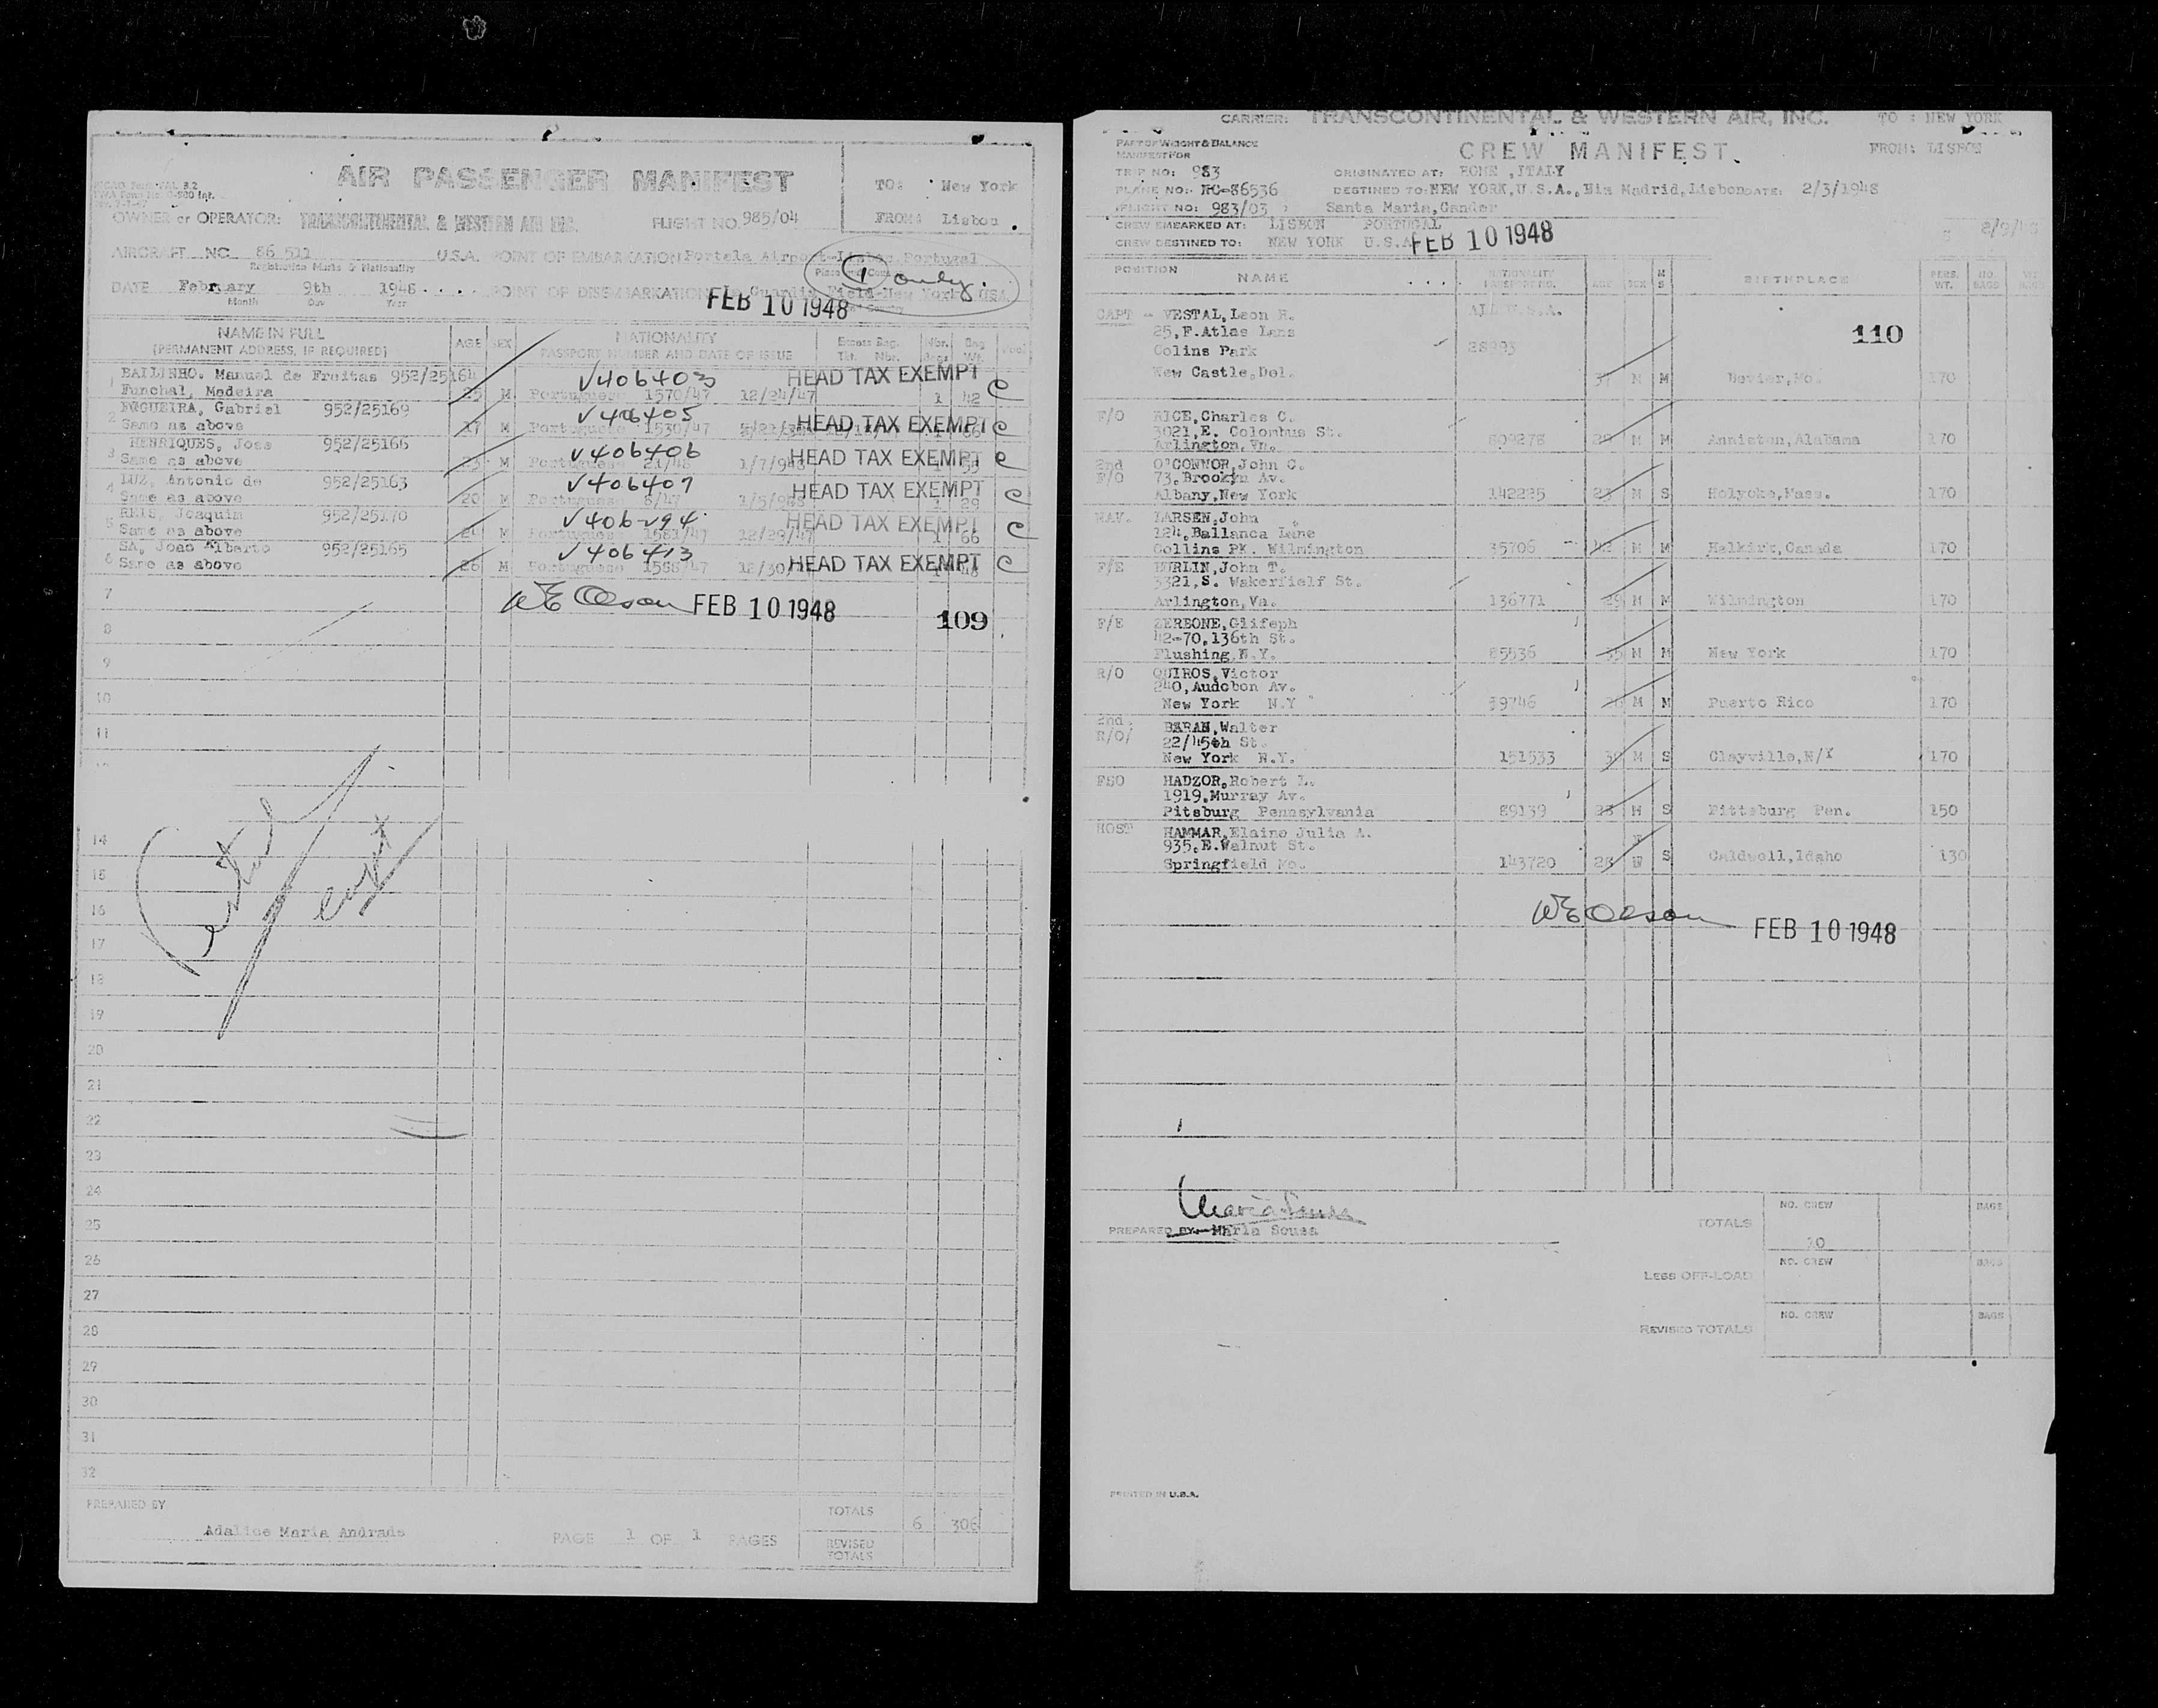 AIR PASSENGER MANIFEST
TO: New York
OWNER or OPERATOR: TRANSCONTINENTAL & WESTERN AIR INC. FLIGHT NO. 985/04
FROM: Lisbon
AIRCRAFT NO. 86 511 U.S.A. POINT OF EMBARKATION Portela Airport-Lisbon, Portugal
Registration Marks & Nationality
1 only.
DATE February 9th 1948 POINT OF DISEMBARKATION La Guardia Field-New York USA
Month Day Year
FEB 10 1948
NAME IN FULL
(PERMANENT ADDRESS, IF REQUIRED)
AGE SEX
NATIONALITY
PASSPORT NUMBER AND DATE OF ISSUE
Excess Bag. Tkt. Nbr.
Nbr. Bags
Bag Wt.
1 BAILINHO. Manuel de Freitas 952/25164 V406403 HEAD TAX EXEMPT C
Funchal, Madeira 25 M Portuguese 1570/47 12/24/47 1 42
2 NOGUEIRA, Gabriel 952/25169 HEAD TAX EXEMPT C
Same as above M Portuguese 1530/47
3 HENRIQUES, Jose 952/25166 V406406 HEAD TAX EXEMPT C
Same as above M Portuguese 1/7/948 55
4 LUZ, Antonio de 952/25163 V406407 HEAD TAX EXEMPT C
Same as above 20 M Portuguese 8/47 1/5/948 1 29
5 REIS, Joaquim 952/25170 HEAD TAX EXEMPT C
Same as above M Portuguese 1581/47 12/29/47 1 66
6 SA, Joao Alberto 952/25165 V406413 HEAD TAX EXEMPT C
Same as above 26 M Portuguese 12/30/ 48
7
WE Olson FEB 10 1948 109
8
9
10
11
14
15
16
17
18
19
20
21
22
23
24
25
26
27
28
29
30
31
32
PREPARED BY
Adalice Maria Andrade
PAGE 1 OF 1 PAGES
TOTALS 6 306
REVISED TOTALS
CARRIER: TRANSCONTINENTAL & WESTERN AIR, INC. TO : NEW YORK
PART OF WEIGHT & BALANCE
MANIFEST FOR
CREW MANIFEST
FROM: LISBON
TRIP NO: 983 ORIGINATED AT: ROME ,ITALY
PLANE NO: NC-86536 DESTINED TO: NEW YORK,U.S.A.,Via Madrid,Lisbon DATE: 2/3/1948
FLIGHT NO: 983/03 Santa Maria,Gander
CREW EMBARKED AT: LISBON PORTUGAL
CREW DESTINED TO: NEW YORK U.S.A
FEB 10 1948
POSITION NAME NATIONALITY PASSPORT NO. AGE SEX M S BIRTHPLACE PERS. WT. NO. BAGS
CAPT - VESTAL,Leon R. ALL U.S.A.
25,F.Atlas Lans
Colins Park
110
New Castle,Del. M M Bevier,Mo. 170
F/O RICE,Charles C.
3021,E. Colombus St.
Arlington,Va. M M Anniston,Alabama 170
2nd F/O O'CONNOR,John C.
73,Brookyn Av.
Albany,New York 142225 23 M S Holyoke,Mass. 170
NAV. LARSEN,John
124,Ballanca Lane
Collins PK. Wilmington 35706 M M Halkirk,Canada 170
F/E BURLIN,John T.
3321,S. Wakerfielf St.
Arlington,Va. 136771 29 M M Wilmington 170
F/E ZERBONE,Glifeph
42-70,136th St.
Flushing,N.Y. 85536 35 M M New York 170
R/O QUIROS,Victor
240,Audobon Av.
New York N.Y 39746 M M Puerto Rico 170
2nd R/O/ BARAN,Walter
22/45th St.
New York N.Y. 151533 M S Clayville,N/Y 170
FSO HADZOR,Robert L.
1919,Murray Av.
Pitsburg Pennsylvania 89139 23 M S Pittsburg Pen. 150
HOST HAMMAR,Elaine Julia A.
935,E.Walnut St.
Springfield Mo. 143720 S Caldwell,Idaho 130
WE Olson
FEB 10 1948
Maria Sousa
PREPARED BY: Maria Sousa
TOTALS NO. CREW 10 BAGS
LESS OFF-LOAD NO. CREW BAGS
REVISED TOTALS NO. CREW BAGS
PRINTED IN U.S.A.